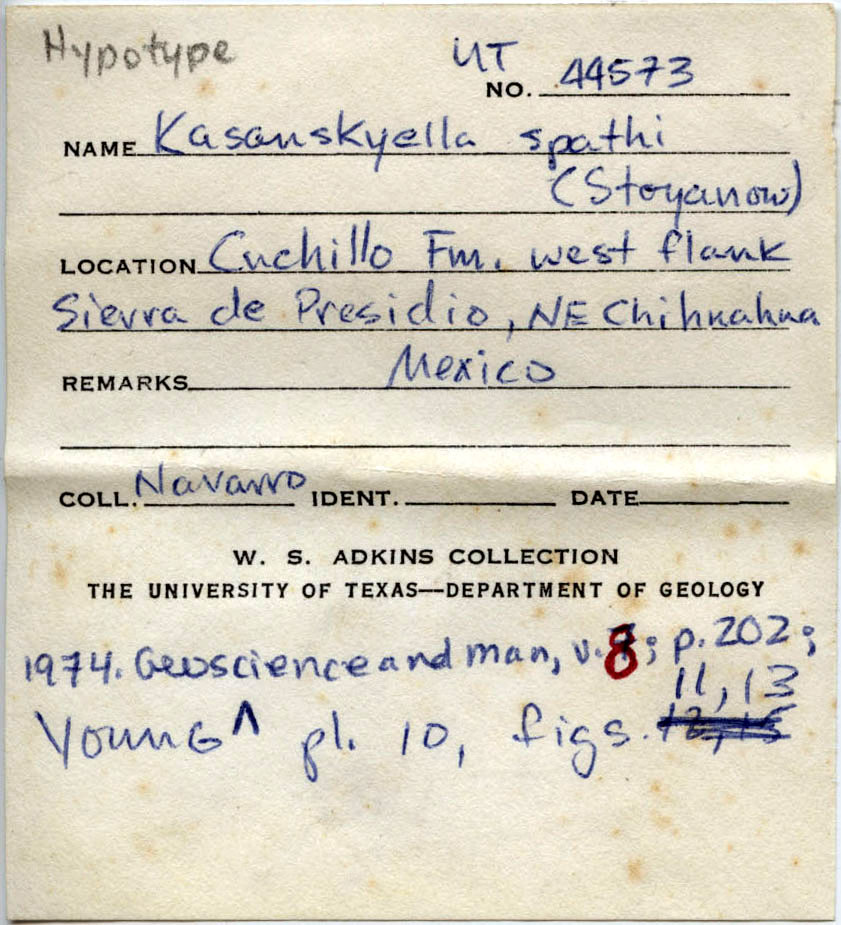 Hypotype
UT
NO. 44573
NAME Kasanskyella spathi
(Stoyanow)
LOCATION Cuchillo Fm. west flank
Sierra de Presidio, NE Chihuahua
REMARKS Mexico
COLL. Navarro IDENT. DATE
W. S. ADKINS COLLECTION
THE UNIVERSITY OF TEXAS—DEPARTMENT OF GEOLOGY
1974. Geoscience and man, v. 8; p. 202;
11, 13
YOUNG ^ pl. 10, figs.